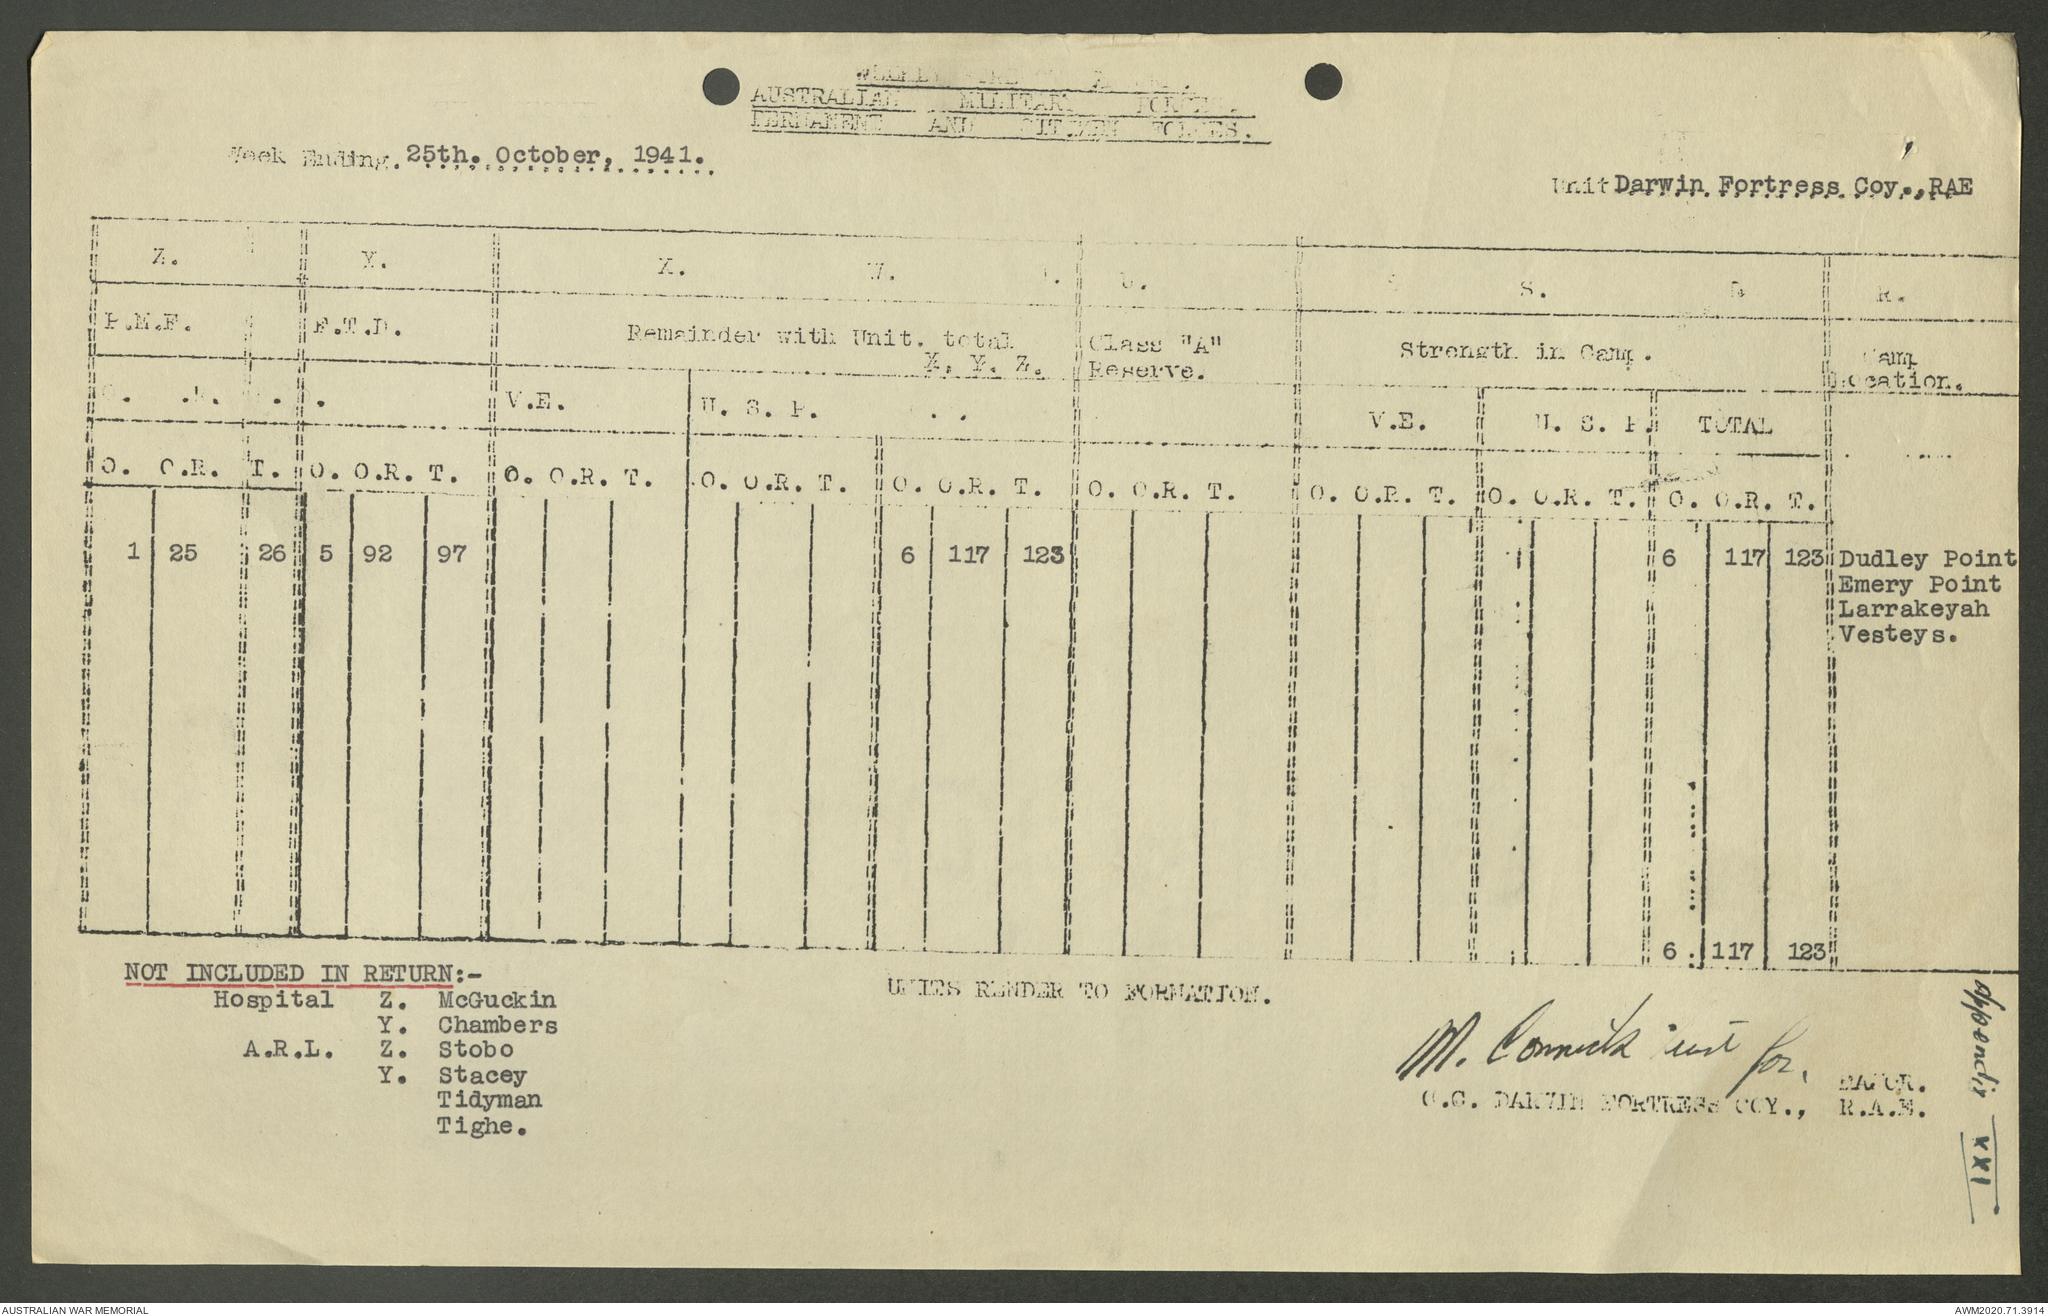 AUSTRALIAN MILITARY FORCES.
PERMANENT AND CITIZEN FORCES.
Week Ending. 25th. October, 1941.
Unit Darwin Fortress Coy., RAE
Z. Y. X. W. U. S. R.
P.M.F. F.T.D. Remainder with Unit. total X. Y. Z. Class "A" Reserve. Strength in Camp. Camp Location.
V.E. U. S. P. V.E. U. S. P. TOTAL
O. O.R. T. O. O.R. T. O. O.R. T. O. O.R. T. O. O.R. T. O. O.R. T. O. O.R. T. O. O.R. T. O. O.R. T.
1 25 26 5 92 97 6 117 123 6 117 123 Dudley Point
Emery Point
Larrakeyah
Vesteys.
6 117 123
NOT INCLUDED IN RETURN:-
Hospital Z. McGuckin
Y. Chambers
A.R.L. Z. Stobo
Y. Stacey
Tidyman
Tighe.
UNITS RENDER TO FORMATION.
for, MAJOR.
O.C. DARWIN FORTRESS COY., R.A.E.
Appendix XXI
AUSTRALIAN WAR MEMORIAL
AWM2020.71.3914